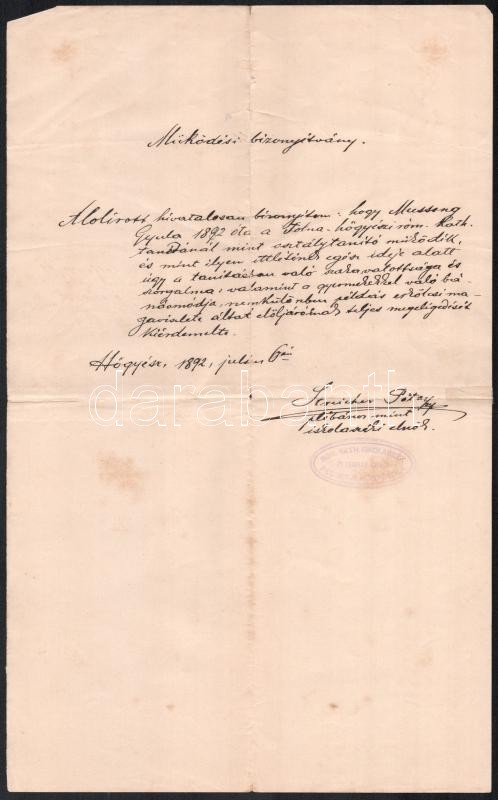 Működési bizonyítvány.
Alolírott hivatalosan bizonyítom, hogy Musseng
Gyula 1892 óta a Tolna-hőgyészi róm. kath.
tanodánál mint osztálytanító működik,
és mint ilyen ittlétének egész ideje alatt
úgy a tanításban való szakavatottsága és
szorgalma, valamint a gyermekekkel való bá-
násmódja, nemkülönben példás erkölcsi ma-
gaviselete által elöljáróinak teljes megelégedését
kiérdemelte.
Hőgyész, 1892, julius 6án
Streicher Péter
plébános mint
iskolaszéki elnök.
darabanth